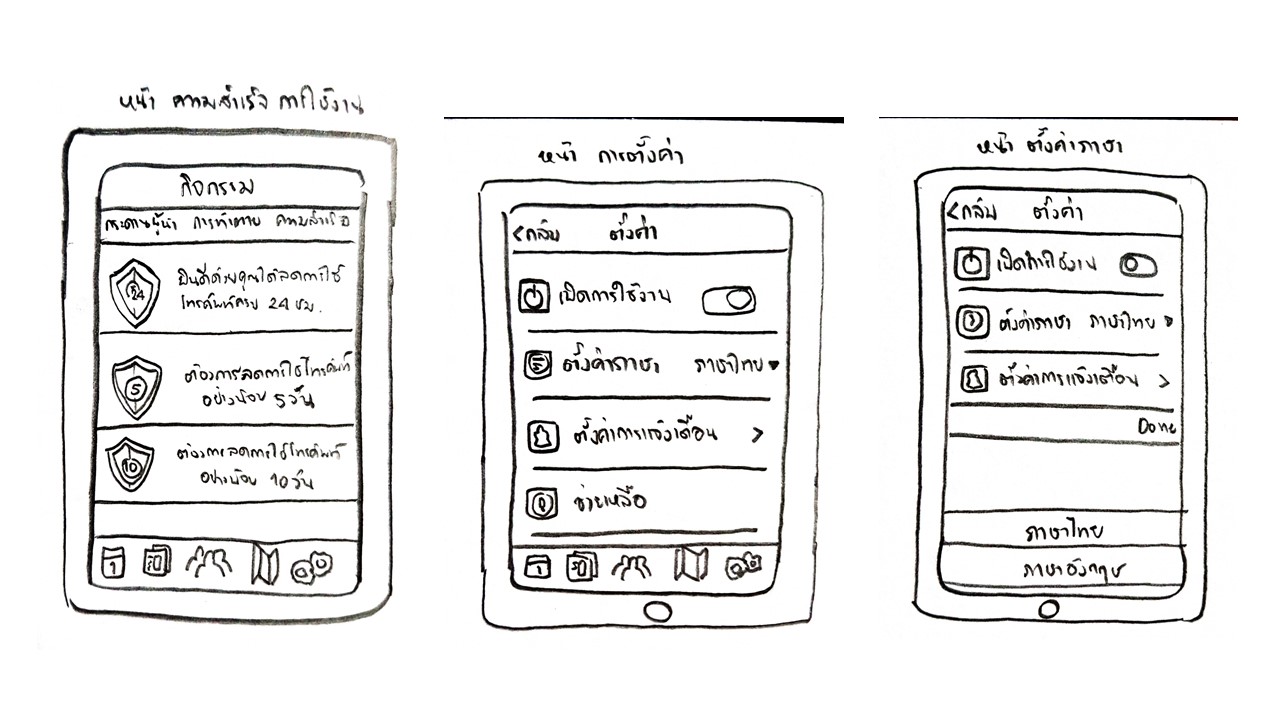 หน้า ความสำเร็จ การใช้งาน
กิจกรรม
กระดานผู้นำ การท้าทาย ความสำเร็จ
24
ยินดีด้วยคุณได้ลดการใช้
โทรศัพท์ครบ 24 ชม.
5
ต้องการลดการใช้โทรศัพท์
อย่างน้อย 5 วัน
10
ต้องการลดการใช้โทรศัพท์
อย่างน้อย 10 วัน
1
หน้า การตั้งค่า
<กลับ ตั้งค่า
เปิดการใช้งาน
ตั้งค่าภาษา ภาษาไทย
ตั้งค่าการแจ้งเตือน >
ช่วยเหลือ
1
หน้า ตั้งค่าภาษา
<กลับ ตั้งค่า
เปิดการใช้งาน
ตั้งค่าภาษา ภาษาไทย
ตั้งค่าการแจ้งเตือน >
Done
ภาษาไทย
ภาษาอังกฤษ